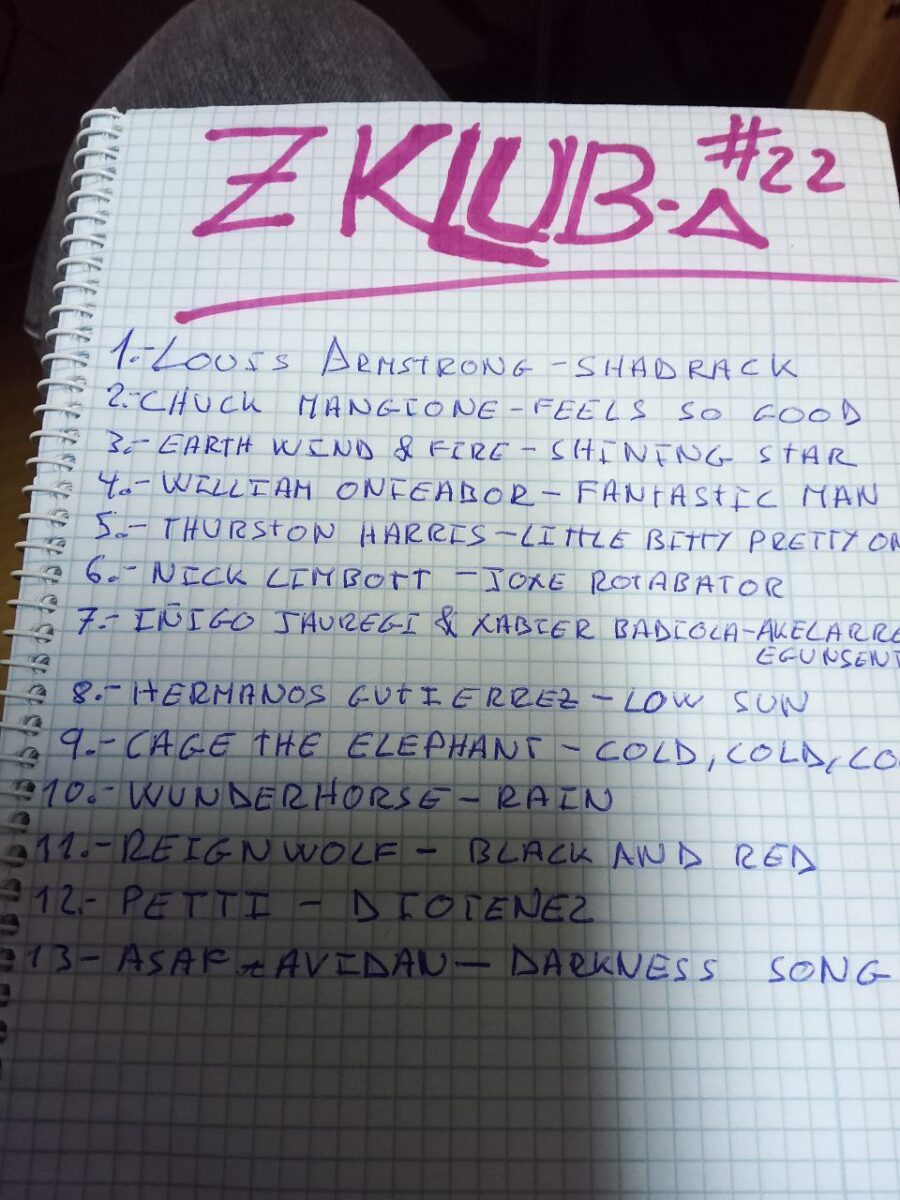 Z KLUB-A #22
1.- LOUIS ARMSTRONG - SHADRACK
2.- CHUCK MANGIONE - FEELS SO GOOD
3.- EARTH WIND & FIRE - SHINING STAR
4.- WILLIAM ONIEABOR - FANTASTIC MAN
5.- THURSTON HARRIS - LITTLE BITTY PRETTY ON
6.- NICK LIMBOTT - JOXE ROTABATOR
7.- IÑIGO JAUREGI & XABIER BADIOLA - AKELARRE
EGUNSENT
8.- HERMANOS GUTIERREZ - LOW SUN
9.- CAGE THE ELEPHANT - COLD, COLD, CO
10.- WUNDERHORSE - RAIN
11.- REIGNWOLF - BLACK AND RED
12.- PETTI - DIOTENEZ
13- ASAF AVIDAN - DARKNESS SONG